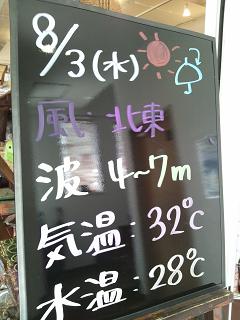 8/3(水)
風:北東
波:4~7m
気温:32℃
水温:28℃